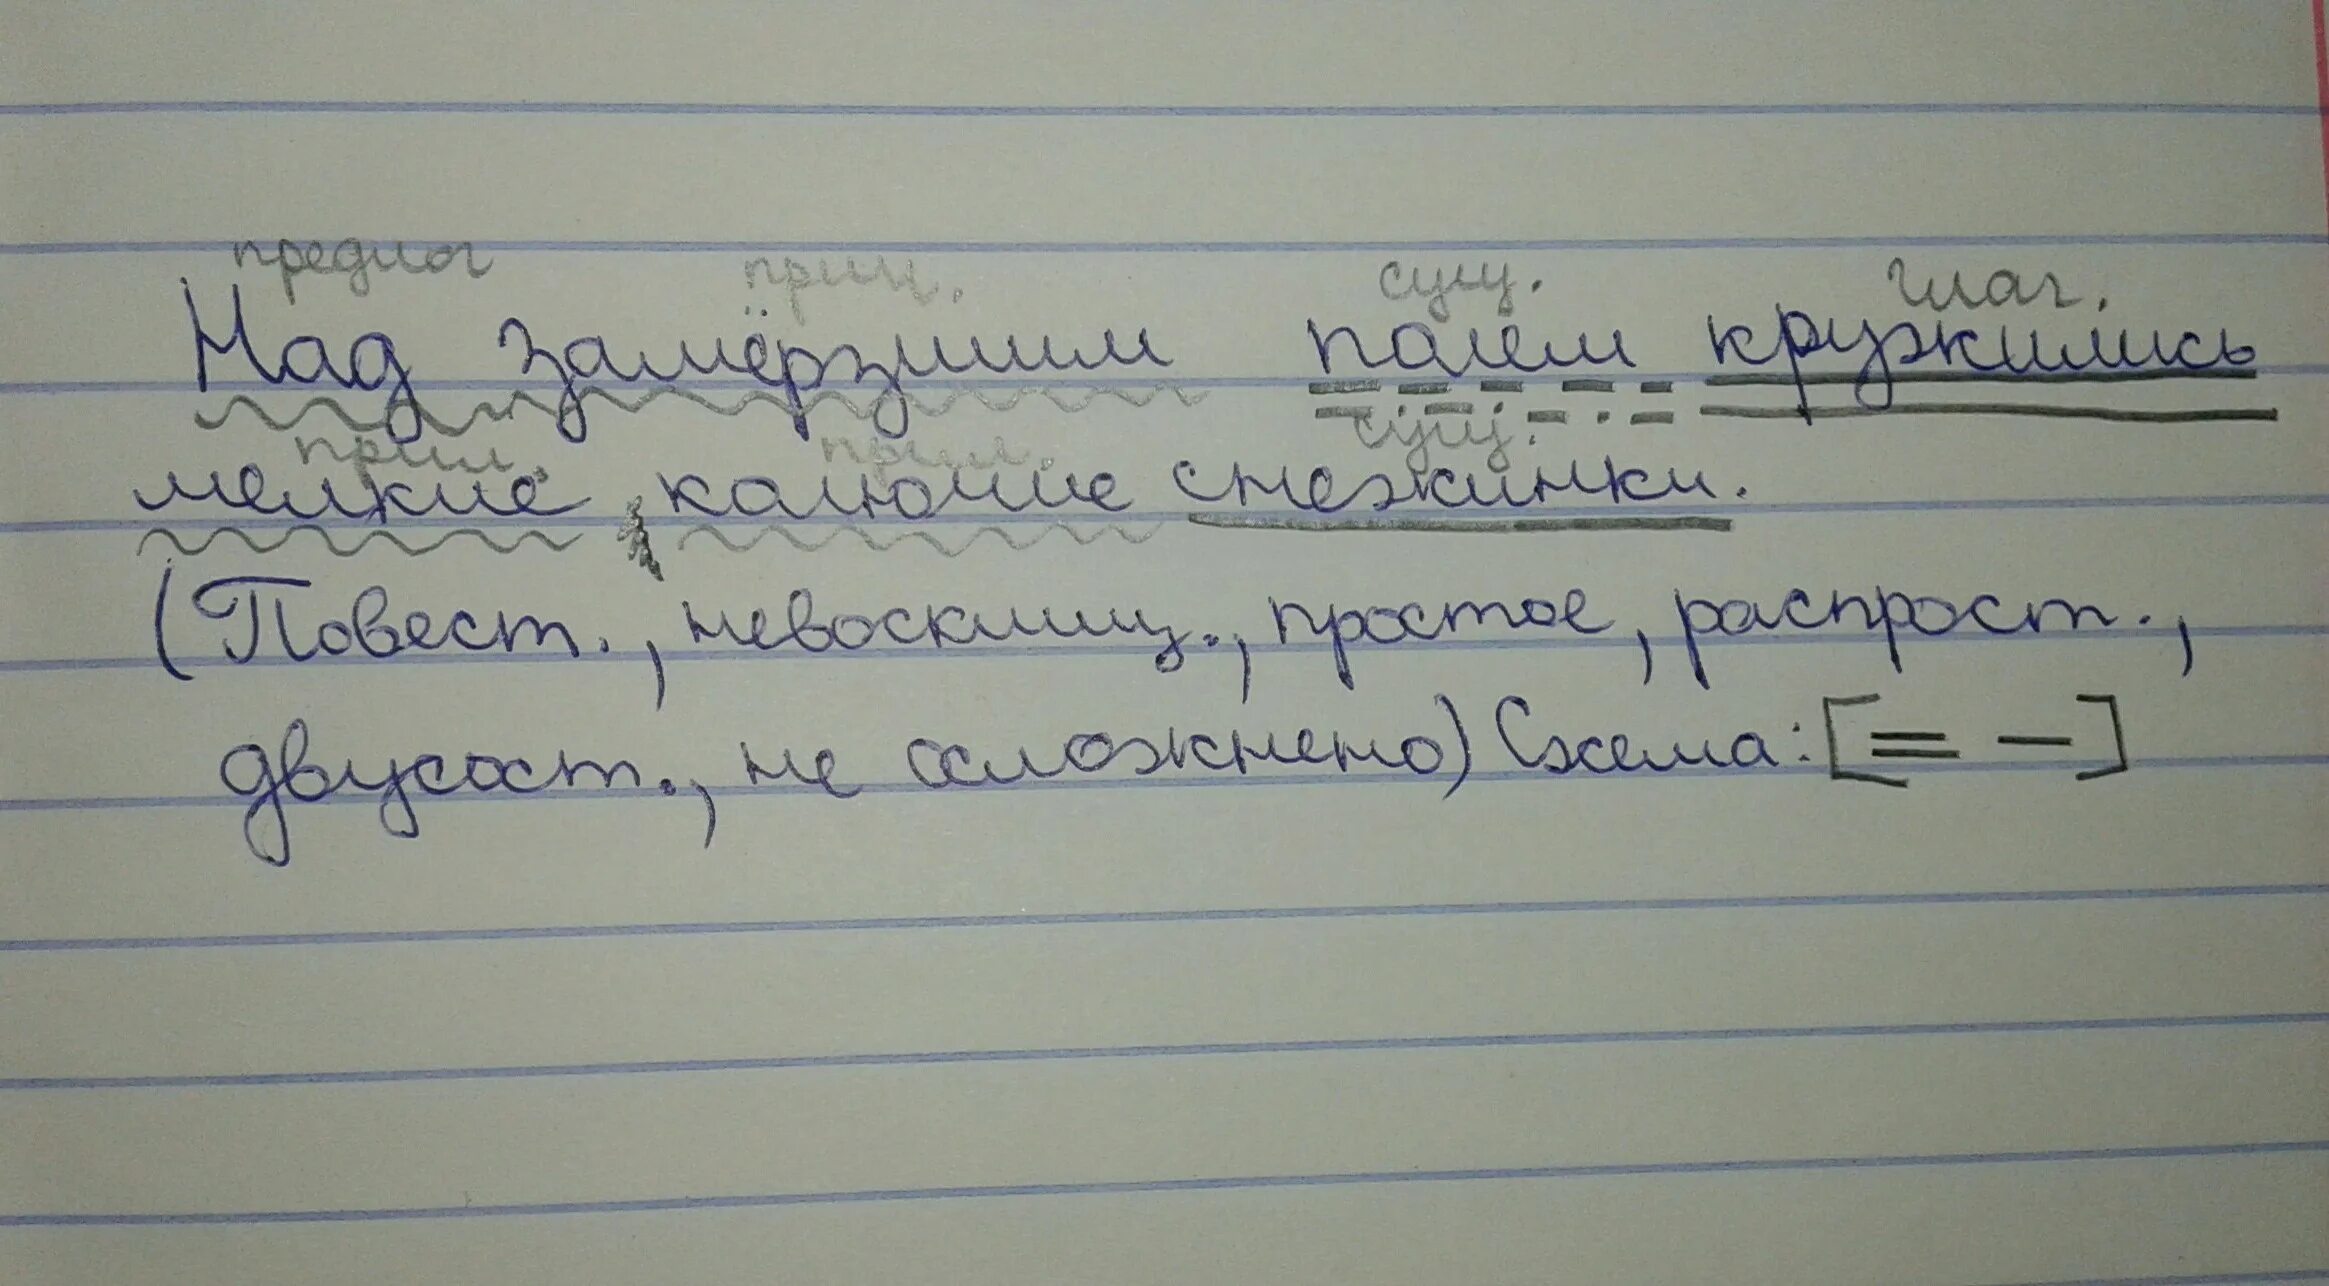 предлог прич. сущ. глаг.
Над замёрзшим полем кружились
прил. прил. сущ.
мелкие, колючие снежинки.
(Повест., невосклиц., простое, распрост.,
двусост., не осложнено) Схема: [= -]